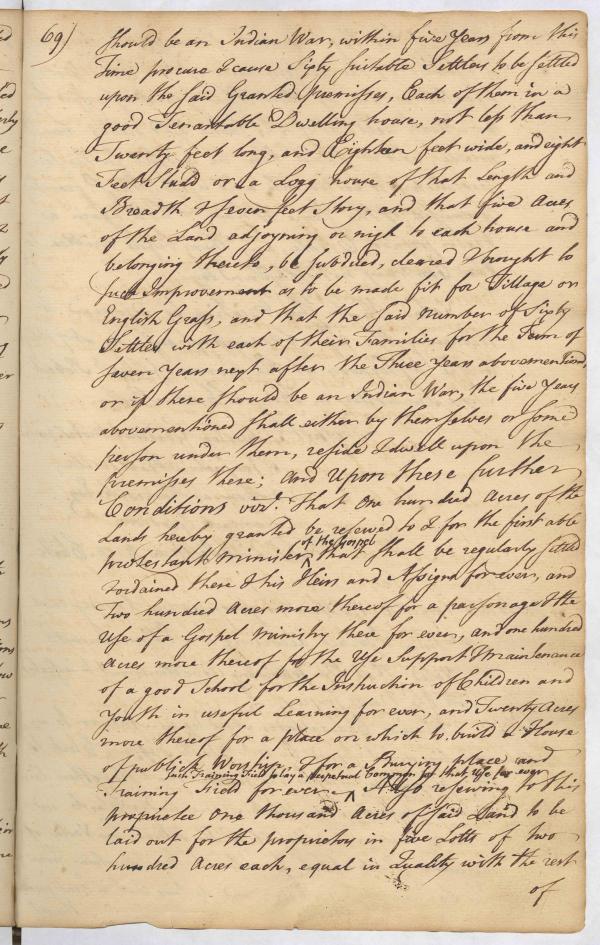 69)
should be an Indian War, within five Years from this
Time procure & cause Sixty suitable Settlers to be settled
upon the said Granted premisses, Each of them in a
good Tenantable Dwelling house, not less than
Twenty feet long, and Eighteen feet wide, and eight
Feet Studd or a Logg house of that Length and
Breadth & seven feet Story, and that five Acres
of the Land adjoyning or nigh to each house and
belonging thereto, be subdued, cleared & brought to
such Improvement as to be made fit for Tillage or
English Grass, and that the said number of Sixty
Settlers with each of their Families for the Term of
saven Years next after the Three Years abovementioned,
or if there should be an Indian War, the five Years
abovementioned shall either by themselves or some
person under them, reside & dwell upon the
premisses there; and Upon these further
Conditions vizt. That One hundred Acres of the
Lands hereby granted be reserved to & for the first able
of the Gospel
protestant minister ^ that shall be regularly settled
& ordained there & his Heirs and Assigns for ever, and
Two hundred Acres more thereof for a parsonage & the
Use of a Gospel ministry there for ever, and one hundred
Acres more thereof for the Use Support & maintenance
of a good School for the Instruction of Children and
Youth in useful Learning for ever, and Twenty Acres
more thereof for a place on which to build a House
of publick Worship, & for a Burying place and
such Training Field to lay a perpetual Common for that Use for ever
Training Field for ever ^ Also reserving to this
proprietee One thousand Acres of said Land to be
laid out for the proprietors in five Lotts of two
hundred Acres each, equal in Quality with the rest
of